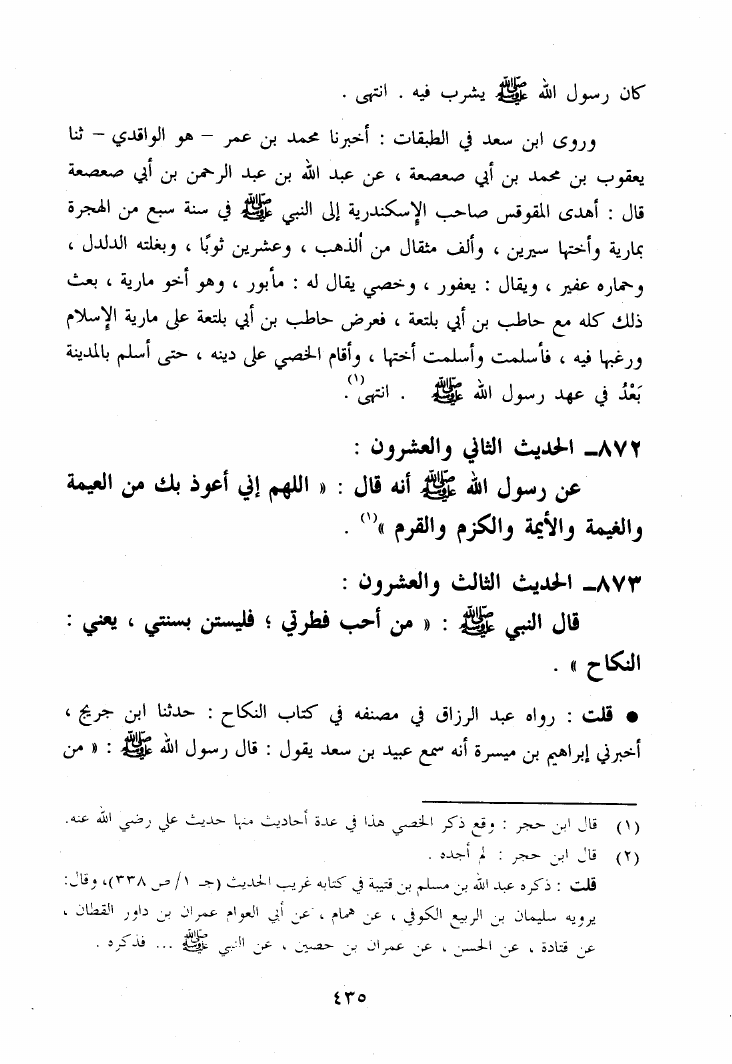 كان رسول الله ﷺ يشرب فيه . انتهى .
وروى ابن سعد في الطبقات : أخبرنا محمد بن عمر – هو الواقدي – ثنا
يعقوب بن محمد بن أبي صعصعة ، عن عبد الله بن عبد الرحمن بن أبي صعصعة
قال : أهدى المقوقس صاحب الإسكندرية إلى النبي ﷺ في سنة سبع من الهجرة
بمارية وأختها سيرين ، وألف مثقال من الذهب ، وعشرين ثوبًا ، وبغلته الدلدل ،
وحماره عفير ، ويقال : يعفور ، وخصي يقال له : مأبور ، وهو أخو مارية ، بعث
ذلك كله مع حاطب بن أبي بلتعة ، فعرض حاطب بن أبي بلتعة على مارية الإسلام
ورغبها فيه ، فأسلمت وأسلمت أختها ، وأقام الخصي على دينه ، حتى أسلم بالمدينة
بَعْدُ في عهد رسول الله ﷺ . انتهى(١).
٨٧٢ــ الحديث الثاني والعشرون :
عن رسول الله ﷺ أنه قال : « اللهم إني أعوذ بك من العيمة
والغيمة والأيمة والكزم والقرم »(١) .
٨٧٣ــ الحديث الثالث والعشرون :
قال النبي ﷺ : « من أحب فطرتي ؛ فليستن بسنتي ، يعني :
النكاح » .
● قلت : رواه عبد الرزاق في مصنفه في كتاب النكاح : حدثنا ابن جريج ،
أخبرني إبراهيم بن ميسرة أنه سمع عبيد بن سعد يقول : قال رسول الله ﷺ : « من
(١) قال ابن حجر : وقع ذكر الخصي هذا في عدة أحاديث منها حديث علي رضي الله عنه.
(٢) قال ابن حجر : لم أجده .
قلت : ذكره عبد الله بن مسلم بن قتيبة في كتابه غريب الحديث (جـ ١/ ص ٣٣٨)، وقال:
يرويه سليمان بن الربيع الكوفي ، عن همام ، عن أبي العوام عمران بن داور القطان ،
عن قتادة ، عن الحسن ، عن عمران بن حصين ، عن النبي ﷺ ... فذكره .
٤٣٥